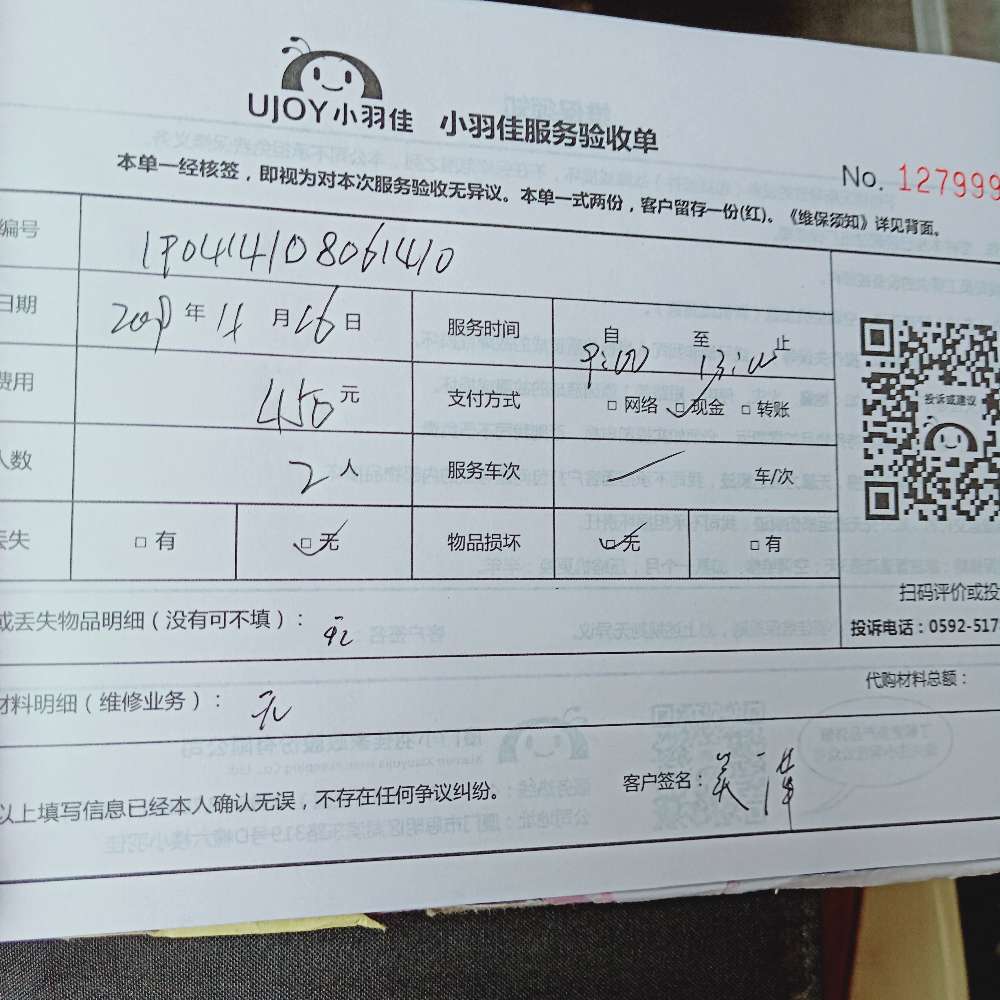 UJOY小羽佳 小羽佳服务验收单
No. 127999
本单一经核签，即视为对本次服务验收无异议。本单一式两份，客户留存一份(红)。《维保须知》详见背面。
编号
日期 年 11 月 16 日 服务时间 自 9:00 至 13:00 止
费用 450 元 支付方式 □ 网络 □ 现金 □ 转账
人数 2 人 服务车次 车/次
丢失 □ 有 □ 无 物品损坏 □ 无 □ 有
投诉或建议
扫码评价或投
投诉电话：0592-517
或丢失物品明细（没有可不填）： 无
材料明细（维修业务）： 无
代购材料总额：
以上填写信息已经本人确认无误，不存在任何争议纠纷。 客户签名：